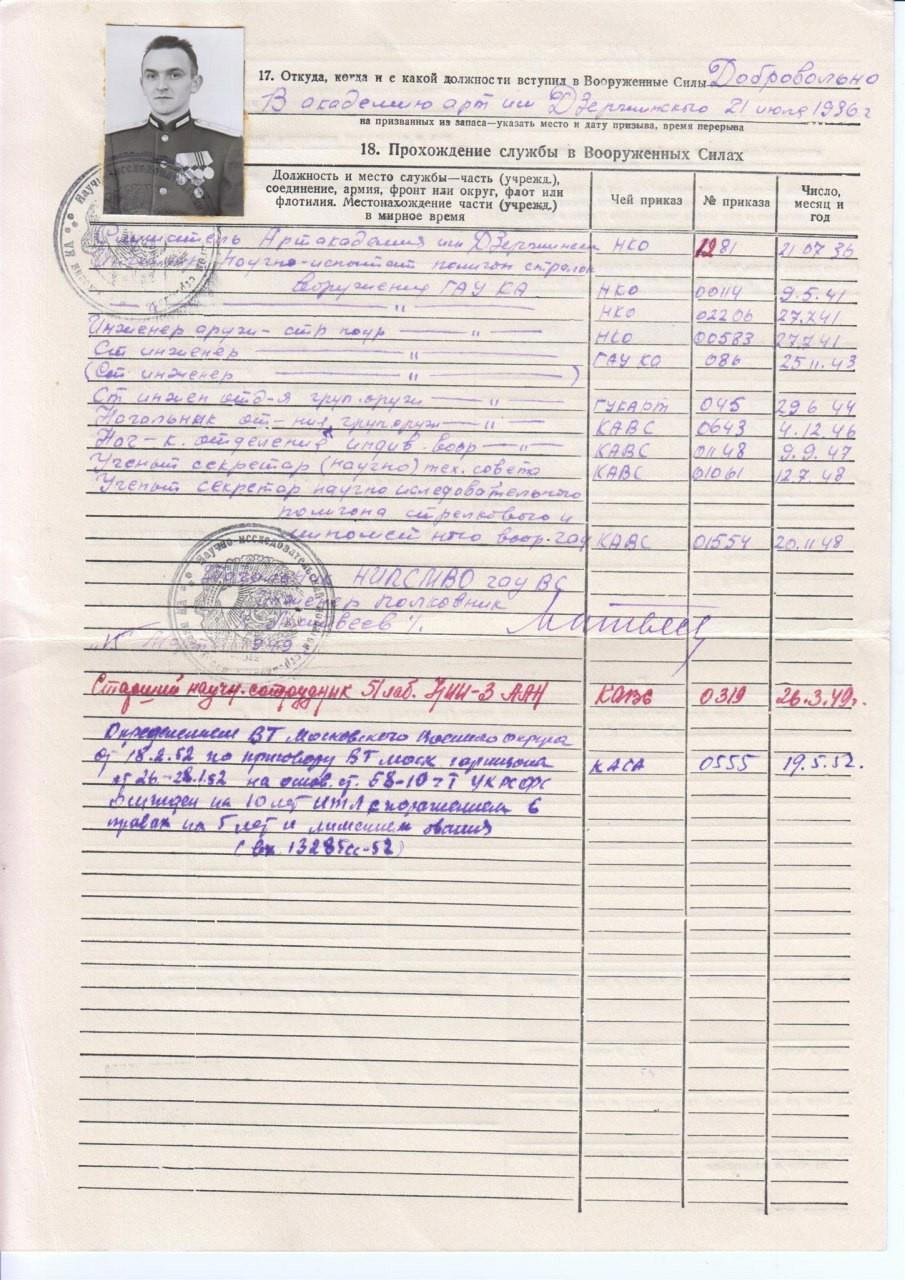 17. Откуда, когда и с какой должности вступил в Вооруженные Силы Добровольно
В академию арт им Дзержинского 21 июля 1936 г
на призванных из запаса—указать место и дату призыва, время перерыва
18. Прохождение службы в Вооруженных Силах
Должность и место службы—часть (учрежд.), соединение, армия, фронт или округ, флот или флотилия. Местонахождение части (учрежд.) в мирное время Чей приказ № приказа Число, месяц и год
Артакадемия им Дзержинск НКО 1281 21 07 36
Научно-испытат полигон стрелков
вооружения ГАУ КА НКО 00114 9.5.41
— " — НКО 02206 27.7.41
Инженер оружи- стр — " — НКО 00583 27.7.41
Ст инженер — " — ГАУ КА 086 25 11. 43
(Ст. инженер — " — )
Ст инжен отд-я груп. оружи — " — ГУКАрт 045 29 6 44
Начальник от-ния груп оруж — " — КАВС 0643 4.12.46
Нач-к. отделения индив. воор — " — КАВС 01148 9.9.47
Ученый секретар (научно) тех. совета КАВС 01061 12.7.48
Ученый секретар научно иследовательского
полигона стрелкового и
миномет ного воор. ГАУ КАВС 01554 20.11.48
НИПСМВО ГАУ ВС
Инженер полковник
Матвеев
949
Старший научн. сотрудник 51 лаб. ЦНИИ-3 ААН КАВС 0319 26.3.49г.
Определением ВТ Московского Военного округа
от 18.2.52 по приговору ВТ моск гарнизона КАСА 0555 19.5.52.
от 26-28.1.52 на основ. ст. 58-10 УК РСФСР
осужден на 10 лет ИТЛ с поражением в
правах на 5 лет и лишением звания
(вх 13285сс-52)